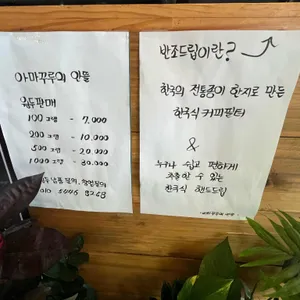 아마꾸루미 안뜰
원두판매
100그램 - 7,000
200그램 - 10,000
500그램 - 20,000
1000그램 - 30,000
반조드립이란?
한국의 전통종이 한지로 만든
한국식 커피필터
&
누구나 쉽고 편하게
추출할 수 있는
한국식 핸드드립